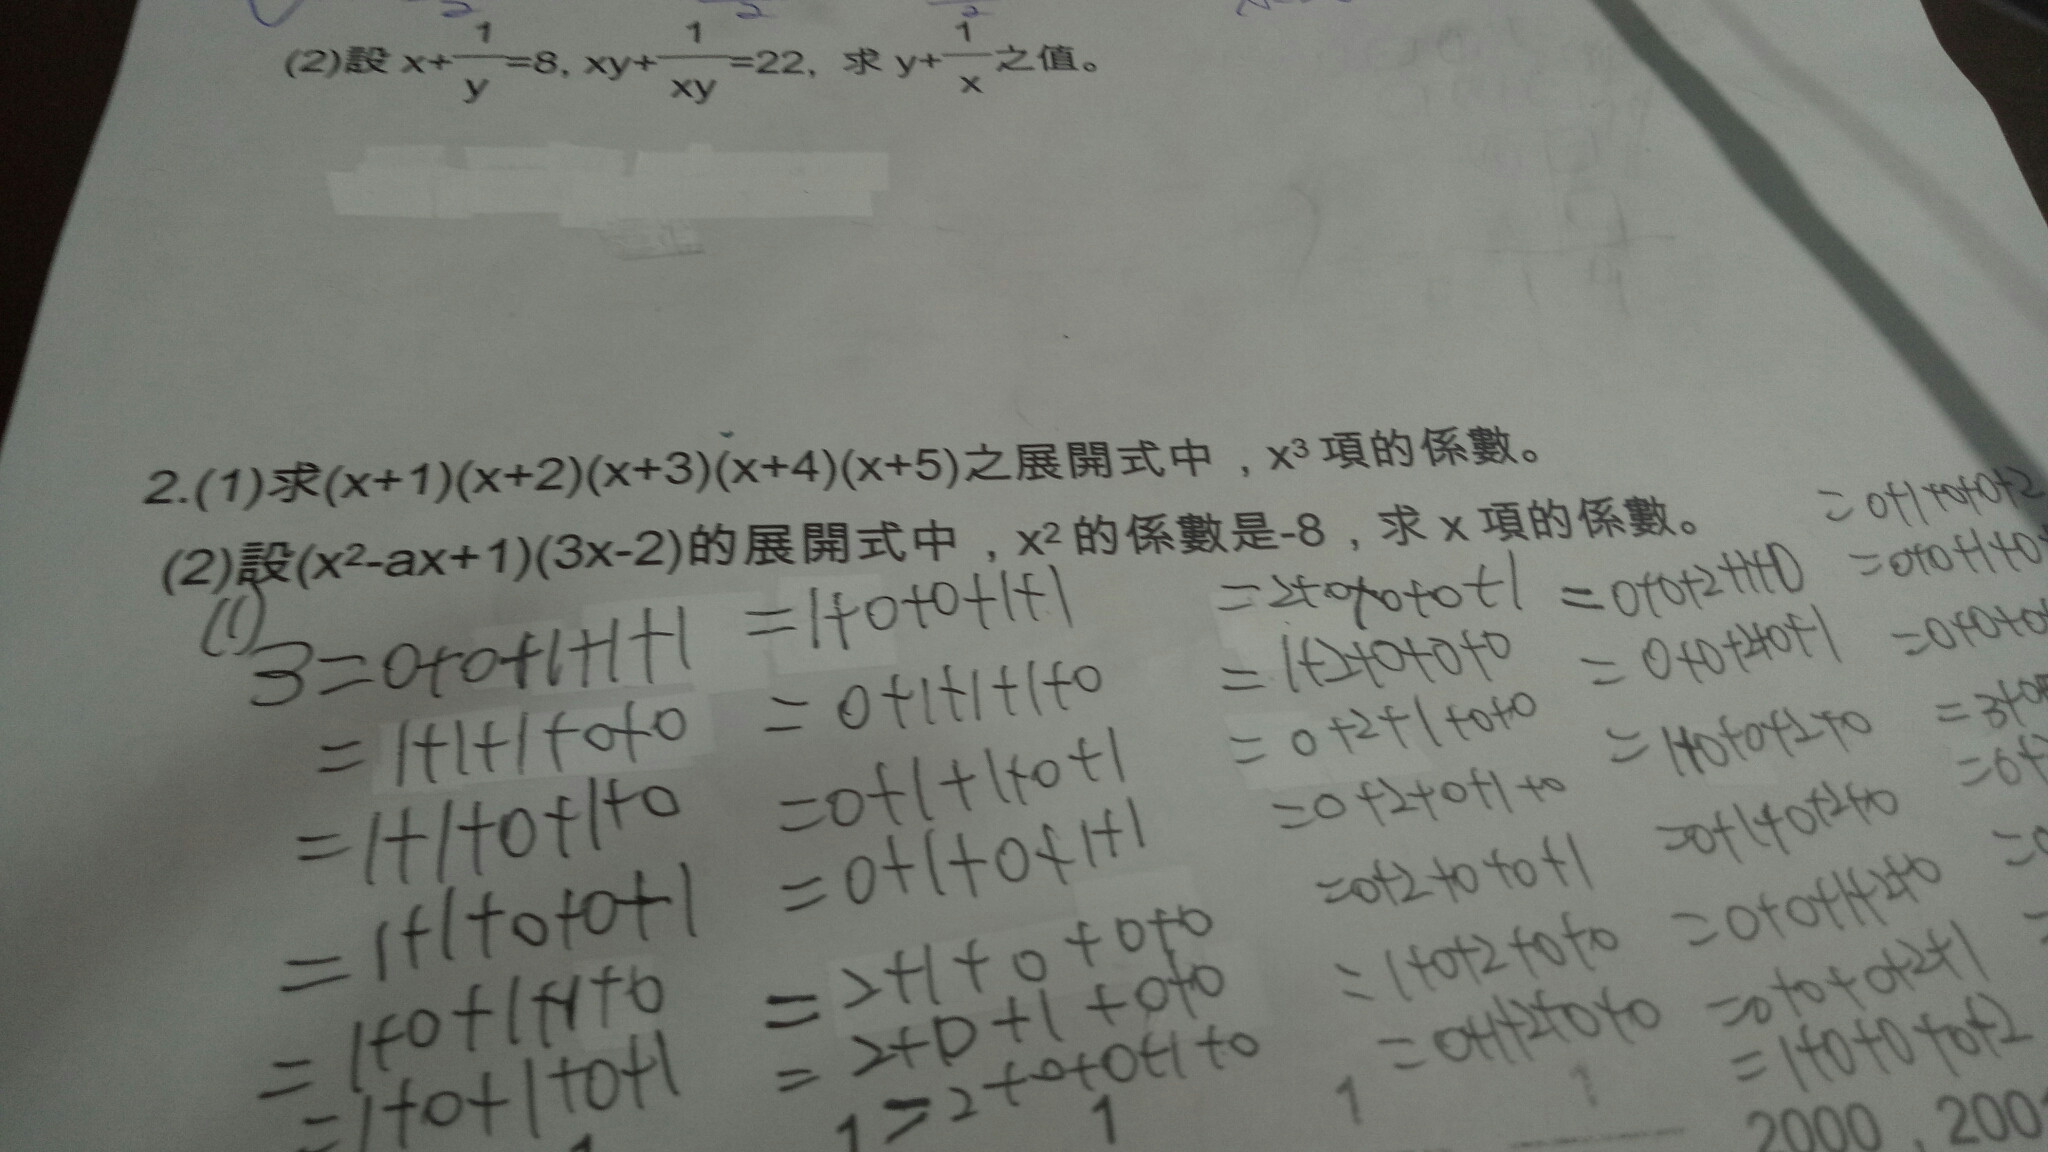 (2)設 x+1/y=8, xy+1/xy=22, 求 y+1/x之值。
2.(1)求(x+1)(x+2)(x+3)(x+4)(x+5)之展開式中，x³項的係數。
(2)設(x²-ax+1)(3x-2)的展開式中，x²的係數是-8，求 x 項的係數。
(1)
3=0+0+1+1+1
=1+1+1+0+0
=1+1+0+1+0
=1+1+0+0+1
=1+0+1+1+0
=1+0+1+0+1
=1+0+0+1+1
=0+1+1+1+0
=0+1+1+0+1
=0+1+0+1+1
=2+1+0+0+0
=2+0+1+0+0
=2+0+0+1+0
=2+0+0+0+1
=1+2+0+0+0
=0+2+1+0+0
=0+2+0+1+0
=0+2+0+0+1
=1+0+2+0+0
=0+1+2+0+0
=0+0+2+1+0
=0+0+2+0+1
=1+0+0+2+0
=0+1+0+2+0
=0+0+1+2+0
=0+0+0+2+1
=1+0+0+0+2
=0+1+0+0+2
=0+0+1+0
=0+0+0
=3+0
1 1 1 1
2000 , 200